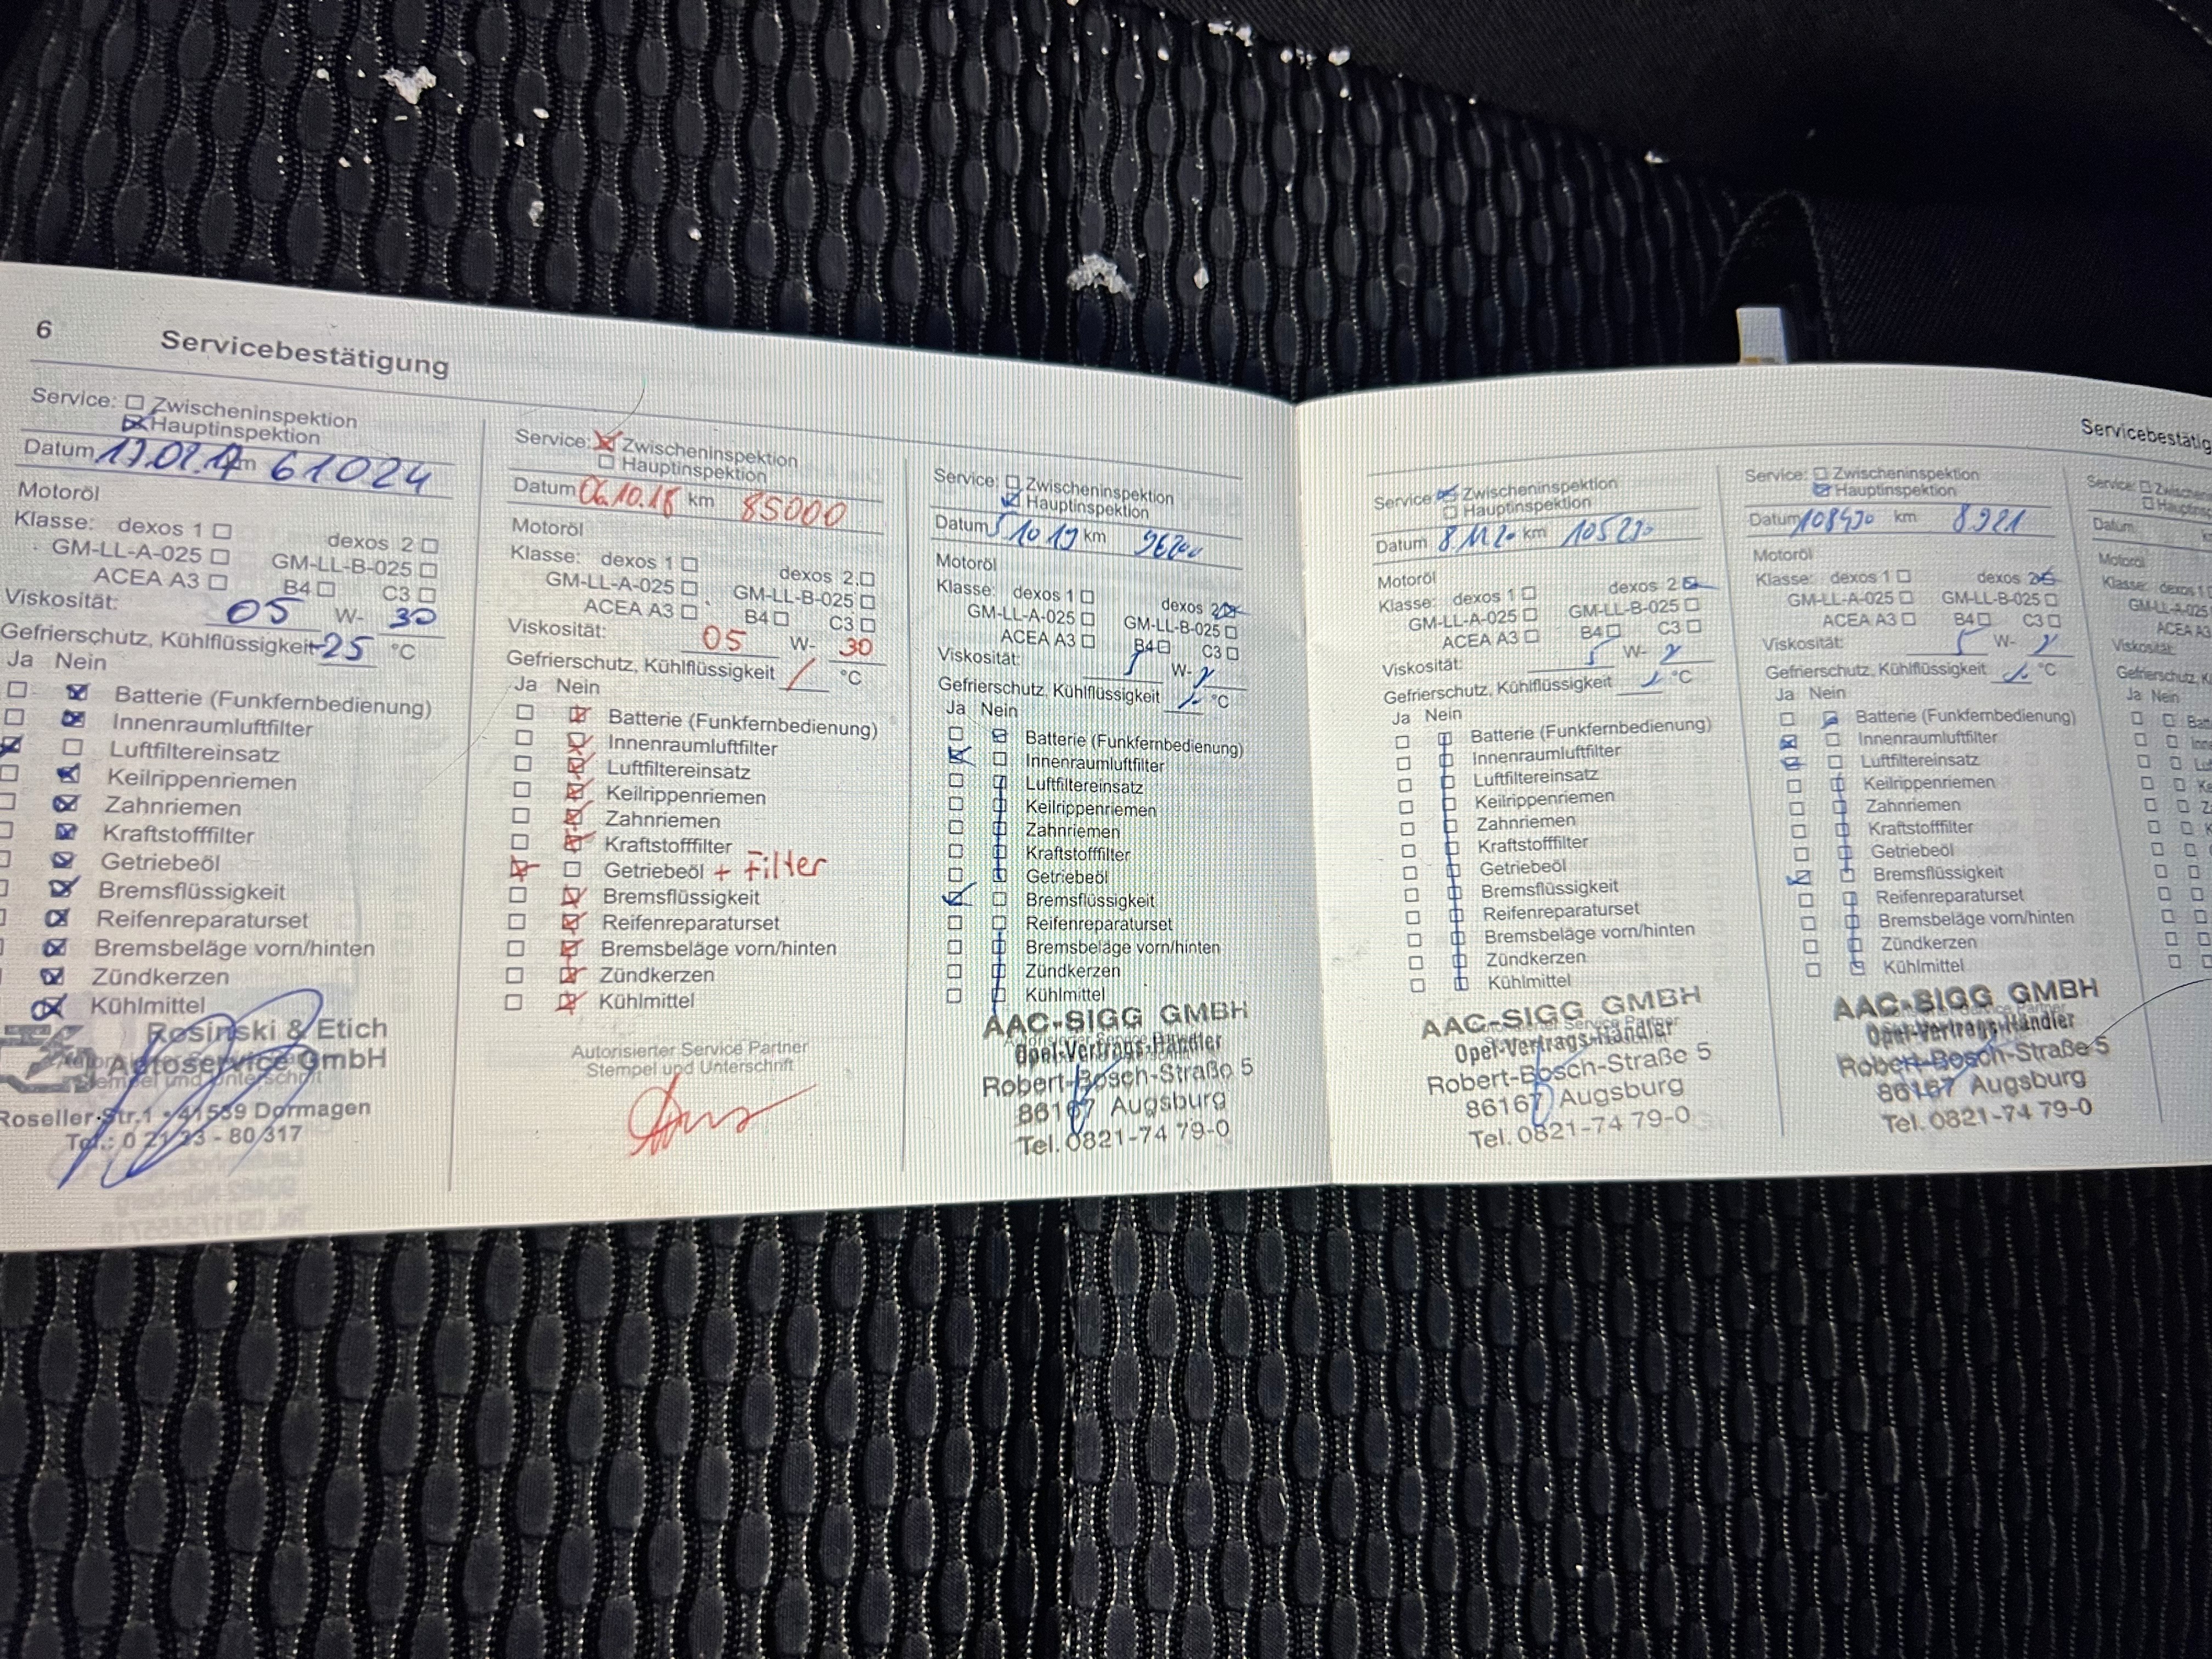 6 Servicebestätigung
Service: Zwischeninspektion
Hauptinspektion
Datum km 61024
Motoröl
Klasse: dexos 1 dexos 2
GM-LL-A-025 GM-LL-B-025
ACEA A3 B4 C3
Viskosität: 05 W- 30
Gefrierschutz, Kühlflüssigkeit -25 °C
Ja Nein
Batterie (Funkfernbedienung)
Innenraumluftfilter
Luftfiltereinsatz
Keilrippenriemen
Zahnriemen
Kraftstofffilter
Getriebeöl
Bremsflüssigkeit
Reifenreparaturset
Bremsbeläge vorn/hinten
Zündkerzen
Kühlmittel
Rosinski & Etich
Autoservice GmbH
Roseller Str. 1 • 41539 Dormagen
Tel.: 0 21 33 - 80 317
Service: Zwischeninspektion
Hauptinspektion
Datum km 85000
Motoröl
Klasse: dexos 1 dexos 2
GM-LL-A-025 GM-LL-B-025
ACEA A3 B4 C3
Viskosität: 05 W- 30
Gefrierschutz, Kühlflüssigkeit / °C
Ja Nein
Batterie (Funkfernbedienung)
Innenraumluftfilter
Luftfiltereinsatz
Keilrippenriemen
Zahnriemen
Kraftstofffilter
Getriebeöl + Filter
Bremsflüssigkeit
Reifenreparaturset
Bremsbeläge vorn/hinten
Zündkerzen
Kühlmittel
Autorisierter Service Partner
Stempel und Unterschrift
Service: Zwischeninspektion
Hauptinspektion
Datum 5 10 19 km
Motoröl
Klasse: dexos 1 dexos 2
GM-LL-A-025 GM-LL-B-025
ACEA A3 B4 C3
Viskosität: 5 W-
Gefrierschutz, Kühlflüssigkeit °C
Ja Nein
Batterie (Funkfernbedienung)
Innenraumluftfilter
Luftfiltereinsatz
Keilrippenriemen
Zahnriemen
Kraftstofffilter
Getriebeöl
Bremsflüssigkeit
Reifenreparaturset
Bremsbeläge vorn/hinten
Zündkerzen
Kühlmittel
AAC-SIGG GMBH
Opel-Vertrags-Händler
Robert-Bosch-Straße 5
86167 Augsburg
Tel. 0821-74 79-0
Service: Zwischeninspektion
Hauptinspektion
Datum 8.11 20 km
Motoröl
Klasse: dexos 1 dexos 2
GM-LL-A-025 GM-LL-B-025
ACEA A3 B4 C3
Viskosität: 5 W-
Gefrierschutz, Kühlflüssigkeit °C
Ja Nein
Batterie (Funkfernbedienung)
Innenraumluftfilter
Luftfiltereinsatz
Keilrippenriemen
Zahnriemen
Kraftstofffilter
Getriebeöl
Bremsflüssigkeit
Reifenreparaturset
Bremsbeläge vorn/hinten
Zündkerzen
Kühlmittel
AAC-SIGG GMBH
Opel-Vertrags-Händler
Robert-Bosch-Straße 5
86167 Augsburg
Tel. 0821-74 79-0
Servicebestätig
Service: Zwischeninspektion
Hauptinspektion
Datum 108430 km 8921
Motoröl
Klasse: dexos 1 dexos 2
GM-LL-A-025 GM-LL-B-025
ACEA A3 B4 C3
Viskosität: 5 W-
Gefrierschutz, Kühlflüssigkeit °C
Ja Nein
Batterie (Funkfernbedienung)
Innenraumluftfilter
Luftfiltereinsatz
Keilrippenriemen
Zahnriemen
Kraftstofffilter
Getriebeöl
Bremsflüssigkeit
Reifenreparaturset
Bremsbeläge vorn/hinten
Zündkerzen
Kühlmittel
AAC-SIGG GMBH
Opel-Vertrags-Händler
Robert-Bosch-Straße 5
86167 Augsburg
Tel. 0821-74 79-0
Service:
Datum
Motoröl
Klasse: dexos 1
GM-LL-A-025
ACEA A3
Viskosität:
Ja Nein